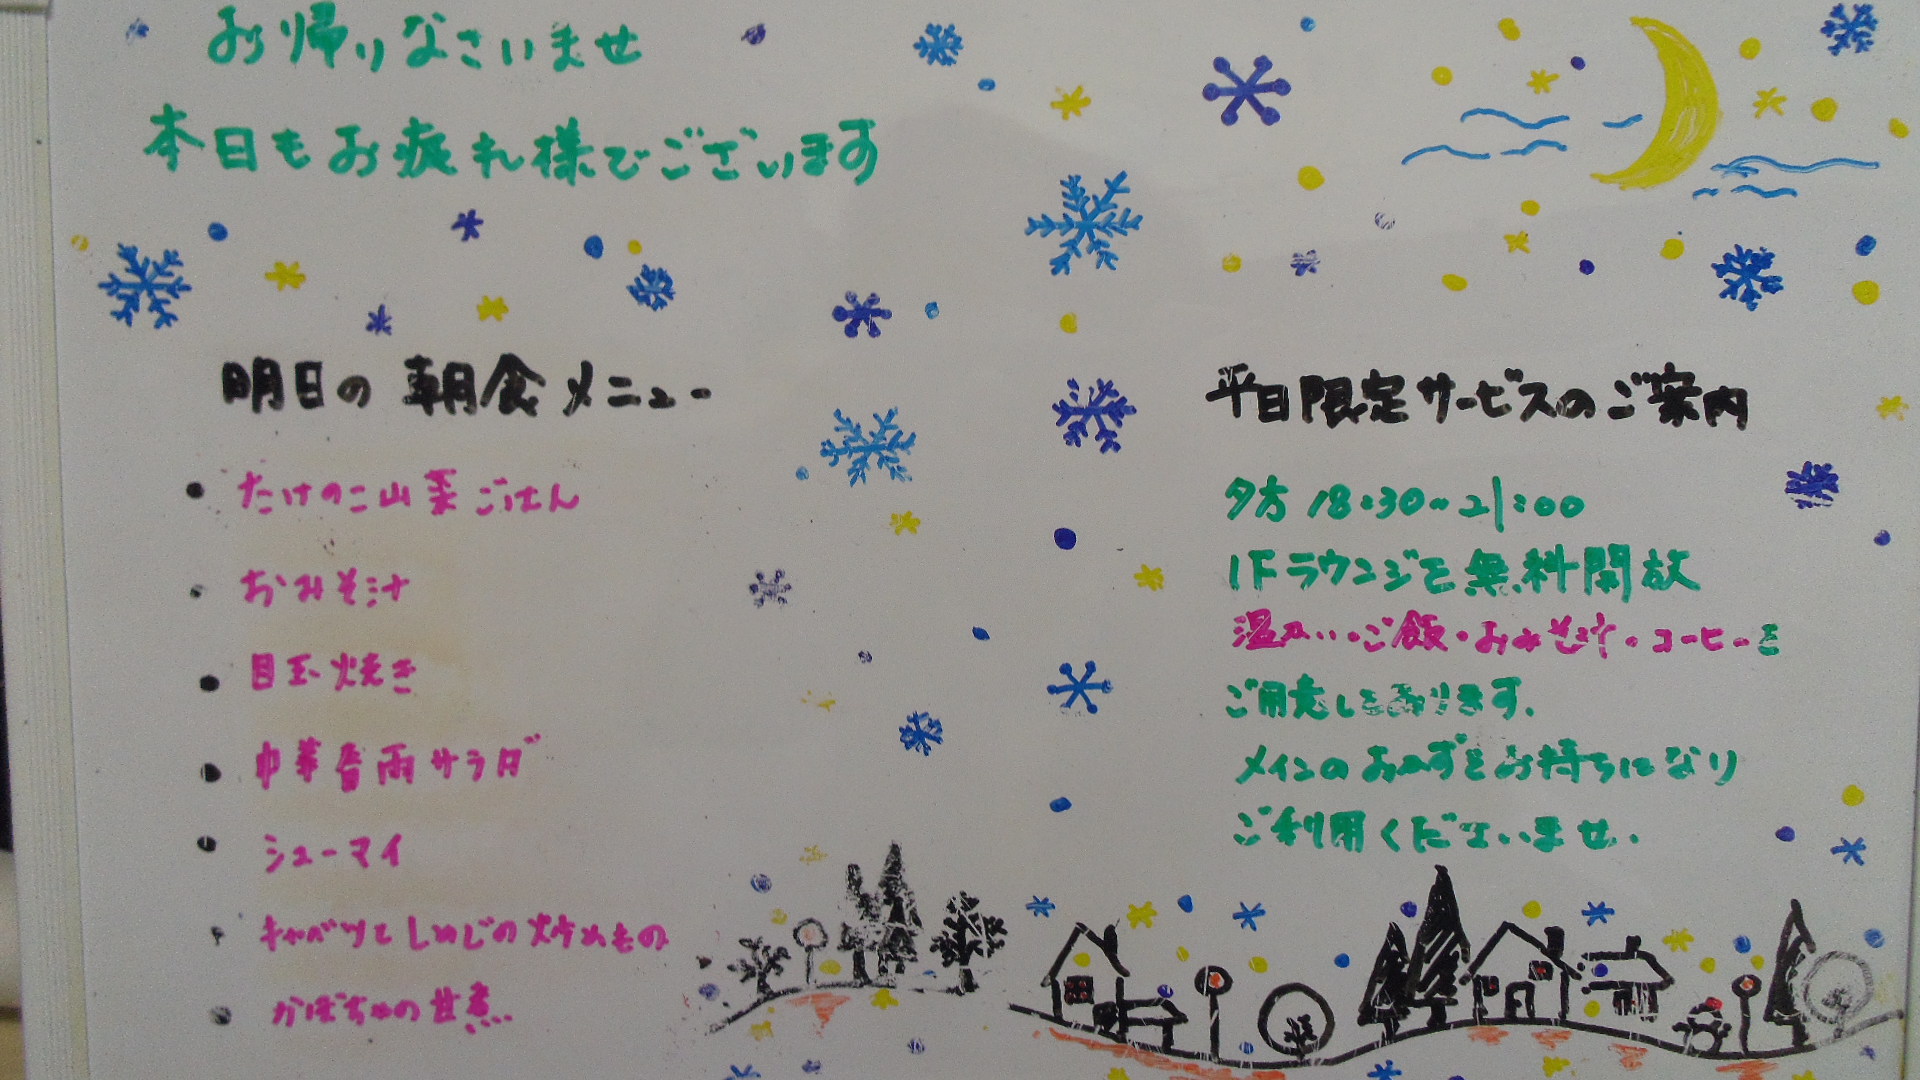 お帰りなさいませ
本日もお疲れ様でございます
明日の朝食メニュー
• たけのこ山菜ごはん
• おみそ汁
• 目玉焼き
• 中華春雨サラダ
• シューマイ
• キャベツとしめじの炒めもの
• かぼちゃの甘煮
平日限定サービスのご案内
夕方 18:30~21:00
1Fラウンジを無料開放
温かい・ご飯・おみそ汁・コーヒーを
ご用意しております.
メインのおかずをお持ちになり
ご利用くださいませ.